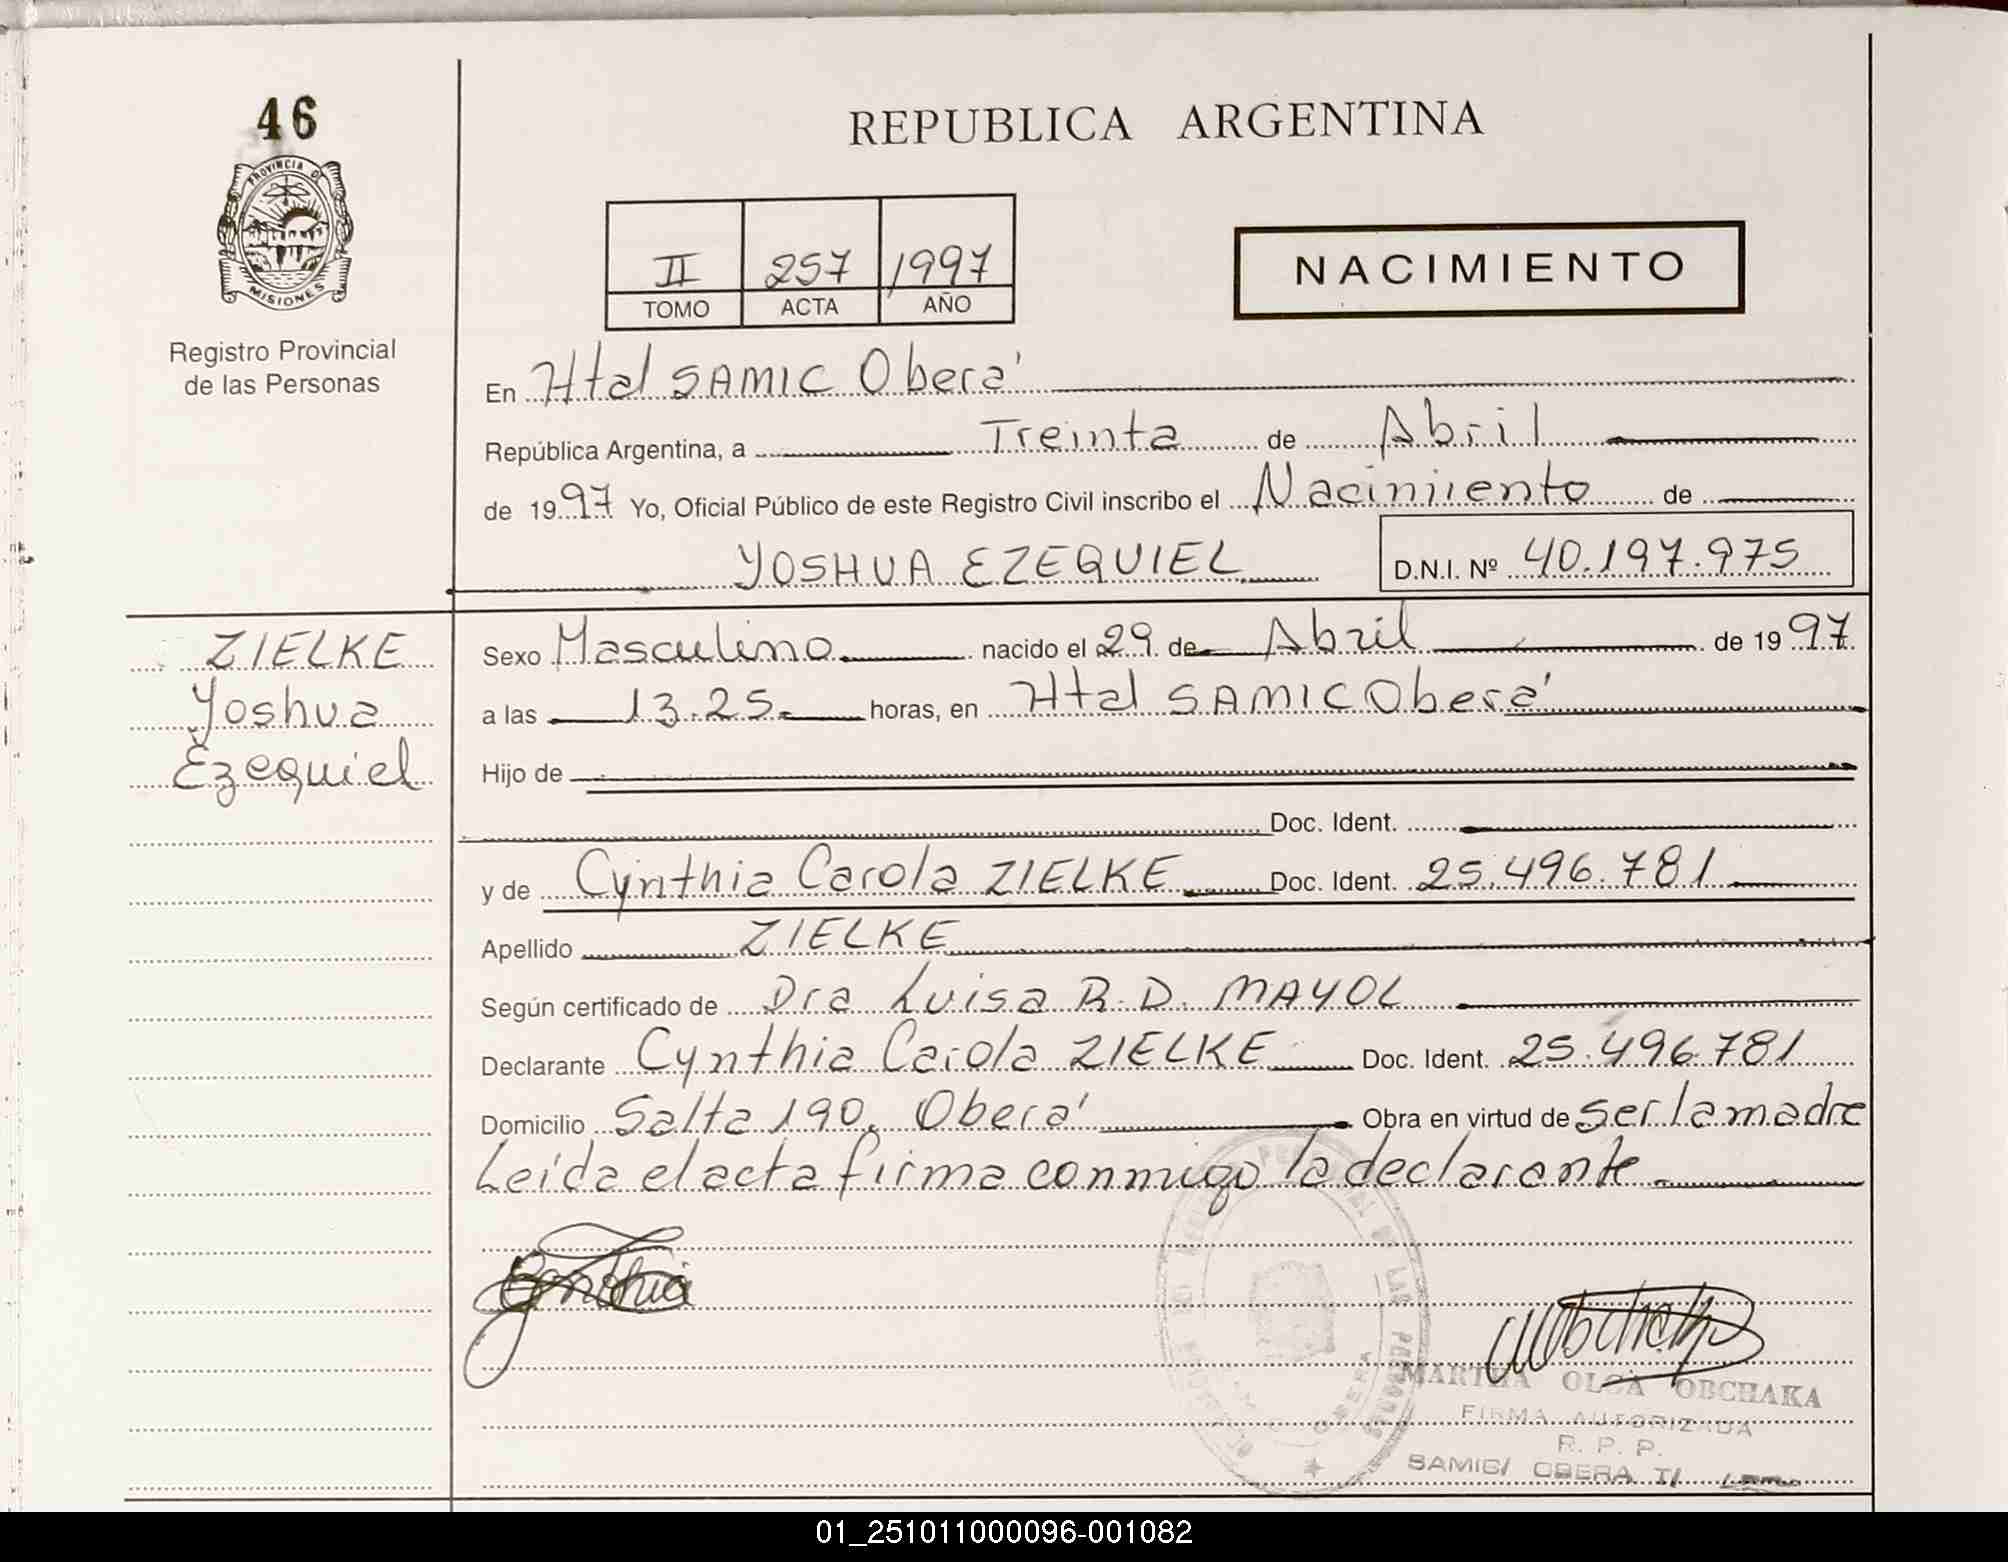 46
PROVINCIA D
MISIONES
Registro Provincial
de las Personas
REPUBLICA ARGENTINA
II 257 1997
TOMO ACTA AÑO
NACIMIENTO
En Htal SAMIC Oberá
República Argentina, a Treinta de Abril
de 1997 Yo, Oficial Público de este Registro Civil inscribo el Nacimiento de
YOSHUA EZEQUIEL D.N.I. Nº 40.197.975
ZIELKE
Yoshua
Ezequiel
Sexo Masculino nacido el 29 de Abril de 1997
a las 13.25 horas, en Htal SAMIC Oberá
Hijo de
Doc. Ident.
y de Cynthia Carola ZIELKE Doc. Ident. 25.496.781
Apellido ZIELKE
Según certificado de Dra Luisa R.D. MAYOL
Declarante Cynthia Carola ZIELKE Doc. Ident. 25.496.781
Domicilio Salta 190, Oberá Obra en virtud de ser la madre
Leída el acta firma conmigo la declarante
Cynthia
MARTHA OLGA OBCHAKA
FIRMA AUTORIZADA
R. P. P.
SAMIC/ OBERA T/
01_251011000096-001082